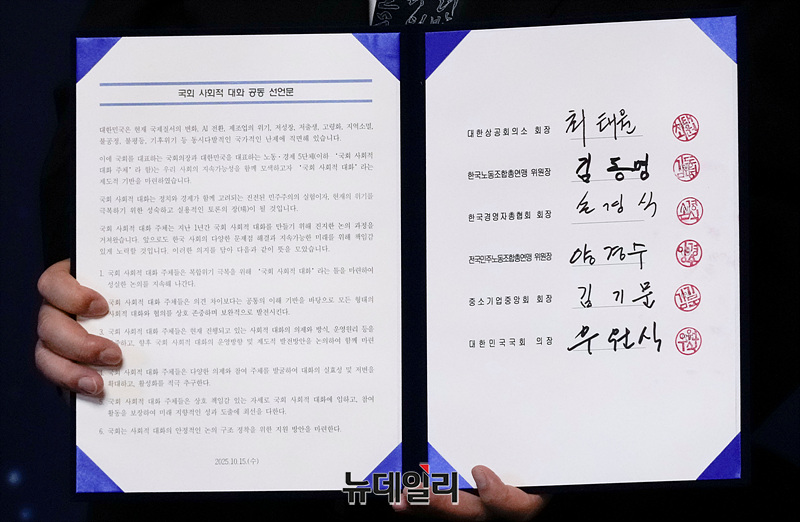 국회 사회적 대화 공동 선언문
대한민국은 현재 국제질서의 변화, AI 전환, 제조업의 위기, 저성장, 저출생, 고령화, 지역소멸,
불공정, 불평등, 기후위기 등 동시다발적인 국가적인 난제에 직면해 있습니다.
이에 국회를 대표하는 국회의장과 대한민국을 대표하는 노동·경제 5단체(이하 “국회 사회적
대화 주체”라 함)는 우리 사회의 지속가능성을 함께 모색하고자 “국회 사회적 대화”라는
제도적 기반을 마련하였습니다.
국회 사회적 대화는 정치와 경제가 함께 고려되는 진전된 민주주의의 실험이자, 현재의 위기를
극복하기 위한 성숙하고 실용적인 토론의 장(場)이 될 것입니다.
국회 사회적 대화 주체는 지난 1년간 국회 사회적 대화를 만들기 위해 진지한 논의 과정을
거쳐왔습니다. 앞으로도 한국 사회의 다양한 문제점 해결과 지속가능한 미래를 위해 책임감
있게 노력할 것입니다. 이러한 의지를 담아 다음과 같이 뜻을 모았습니다.
1. 국회 사회적 대화 주체들은 복합위기 극복을 위해 “국회 사회적 대화”라는 틀을 마련하여
성실한 논의를 지속해 나간다.
국회 사회적 대화 주체들은 의견 차이보다는 공동의 이해 기반을 바탕으로 모든 형태의
사회적 대화와 협의를 상호 존중하며 보완적으로 발전시킨다.
3. 국회 사회적 대화 주체들은 현재 진행되고 있는 사회적 대화의 의제와 방식, 운영원리 등을
하고, 향후 국회 사회적 대화의 운영방향 및 제도적 발전방안을 논의하여 함께 마련
국회 사회적 대화 주체들은 다양한 의제와 참여 주체를 발굴하여 대화의 실효성 및 저변을
확대하고, 활성화를 적극 추구한다.
5. 국회 사회적 대화 주체들은 상호 책임감 있는 자세로 국회 사회적 대화에 임하고, 참여
활동을 보장하여 미래 지향적인 성과 도출에 최선을 다한다.
6. 국회는 사회적 대화의 안정적인 논의 구조 정착을 위한 지원 방안을 마련한다.
2025.10.15.(수)
대한상공회의소 회장 최태원
한국노동조합총연맹 위원장 김동명
한국경영자총협회 회장 손경식
전국민주노동조합총연맹 위원장 양경수
중소기업중앙회 회장 김기문
대한민국국회 의장 우원식
뉴데일리